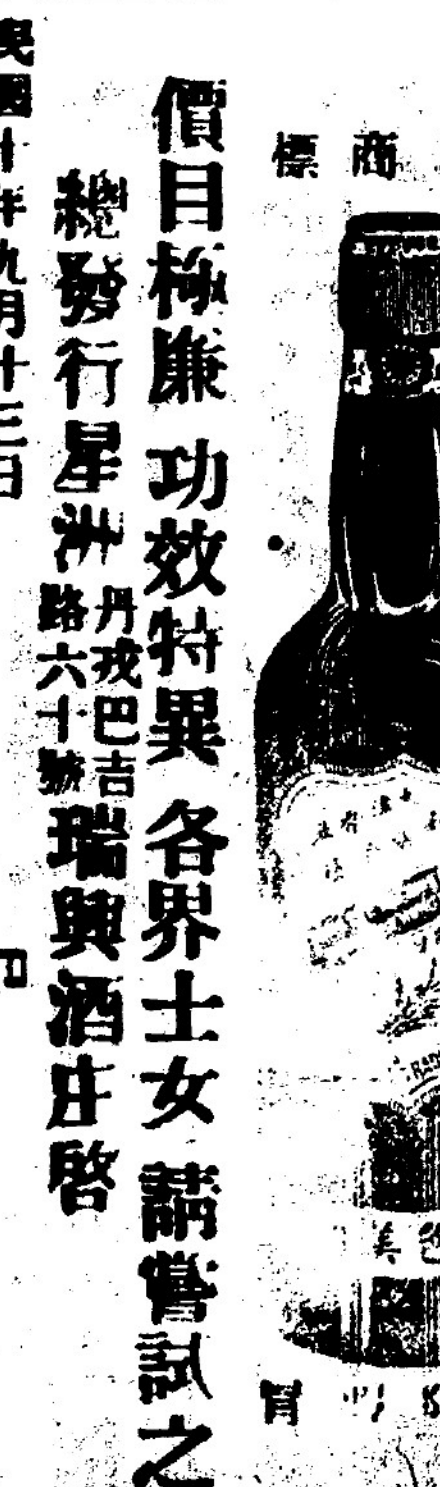 商標
價目極廉 功效特異 各界士女 請嘗試之
總發行星洲
丹戎巴吉
路六十號
瑞興酒庄啓
民國十年九月十三日